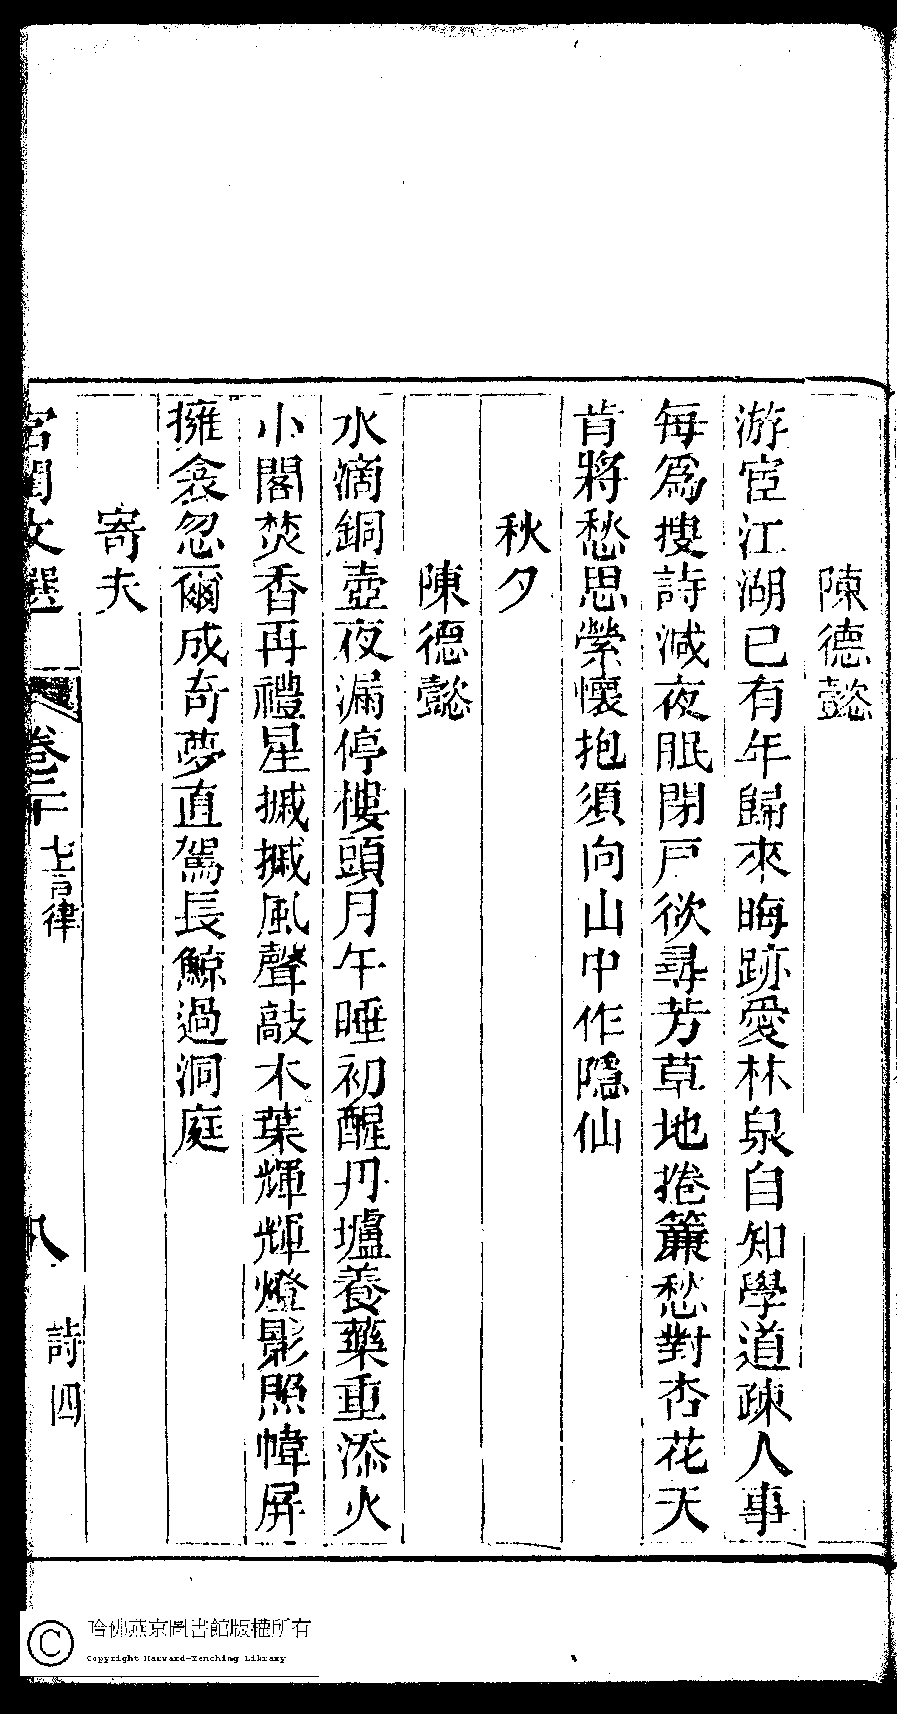 陳德懿
游宦江湖已有年歸來晦跡愛林泉自知學道疎人事
每爲搜詩減夜眠閉戸欲尋芳草地捲簾愁對杏花天
肯將愁思縈懷抱須向山中作隱仙
秋夕
陳德懿
水滴銅壺夜漏停樓頭月午睡初醒丹壚養藥重添火
小閣焚香再禮星摵摵風聲敲木葉輝輝燈影照幃屏
擁衾忽爾成奇夢直駕長鯨過洞庭
寄夫
宮閨文選
卷二十
七言律
八
詩四
哈佛燕京圖書館版權所有
Copyright Harvard-Yenching Library